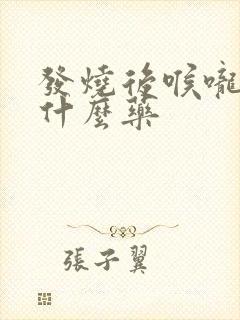 發燒後喉嚨
什麼藥
張子翼